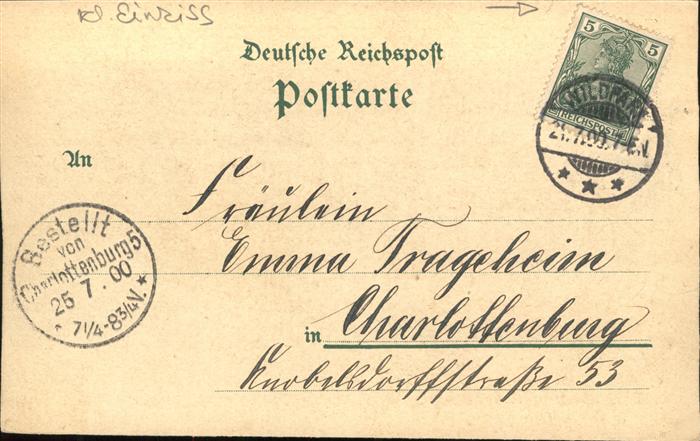 kl. Einriss
Deutsche Reichspost
Postkarte
5 5
REICHSPOST
WILDPARK
7-8V.
An
Fräulein
Emma Trageheim
in Charlottenburg
Knobelsdorffstraße 53
Bestellt
von
Charlottenburg 5
25 7. 00
* 7 1/4-8 3/4 V. *